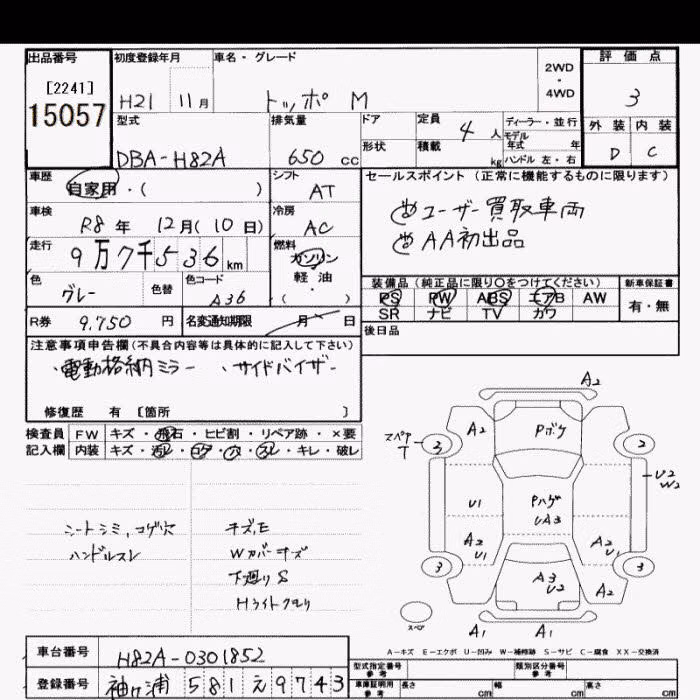 出品番号 初度登録年月 車名・グレード 2WD・4WD 評価点
[2241]
15057
H21 11月 トッポ M 3
型式 排気量 ドア 定員 4人 ディーラー・並行 外装 内装
モデル年式 年
DBA-H82A 650cc 形状 積載 kg ハンドル 左・右 D C
車歴 自家用・( ) シフト AT セールスポイント(正常に機能するものに限ります)
車検 R8年 12月(10日) 冷房 AC
㊒ユーザー買取車両
㊒AA初出品
走行 9万7千536km 燃料 ガソリン・軽油・( )
色 グレー 色替 色コード A36
装備品(純正品に限り〇をつけてください) 新車保証書
PS PW ABS エアB AW 有・無
SR ナビ TV カワ
R券 9,750円 名変通知期限 月 日 後日品
注意事項申告欄(不具合内容等は具体的に記入して下さい)
・電動格納ミラー ・サイドバイザー
修復歴 有 [箇所 ]
検査員 FW キズ・飛石・ヒビ割・リペア跡・×要
記入欄 内装 キズ・汚レ・コゲ・穴・スレ・キレ・破レ
シートシミ,コゲ穴
ハンドルスレ
キズE
Wカバーキズ
下廻りS
Hライトクモリ
A2
A2 Pボケ
スペアT 3 2
U2
W2
U1 Pハゲ
UA3
A2 U1 A2 U1
3 A3 U2 A2 3
スペア A1 A1
A-キズ E-エクボ U-凹み W-補修跡 S-サビ C-腐食 XX-交換済
車台番号 H82A-0301852
型式指定番号 参考 類別区分番号 参考
登録番号 袖ヶ浦 581 え 9743
車庫証明用 参考 長さ cm 幅 cm 高さ cm